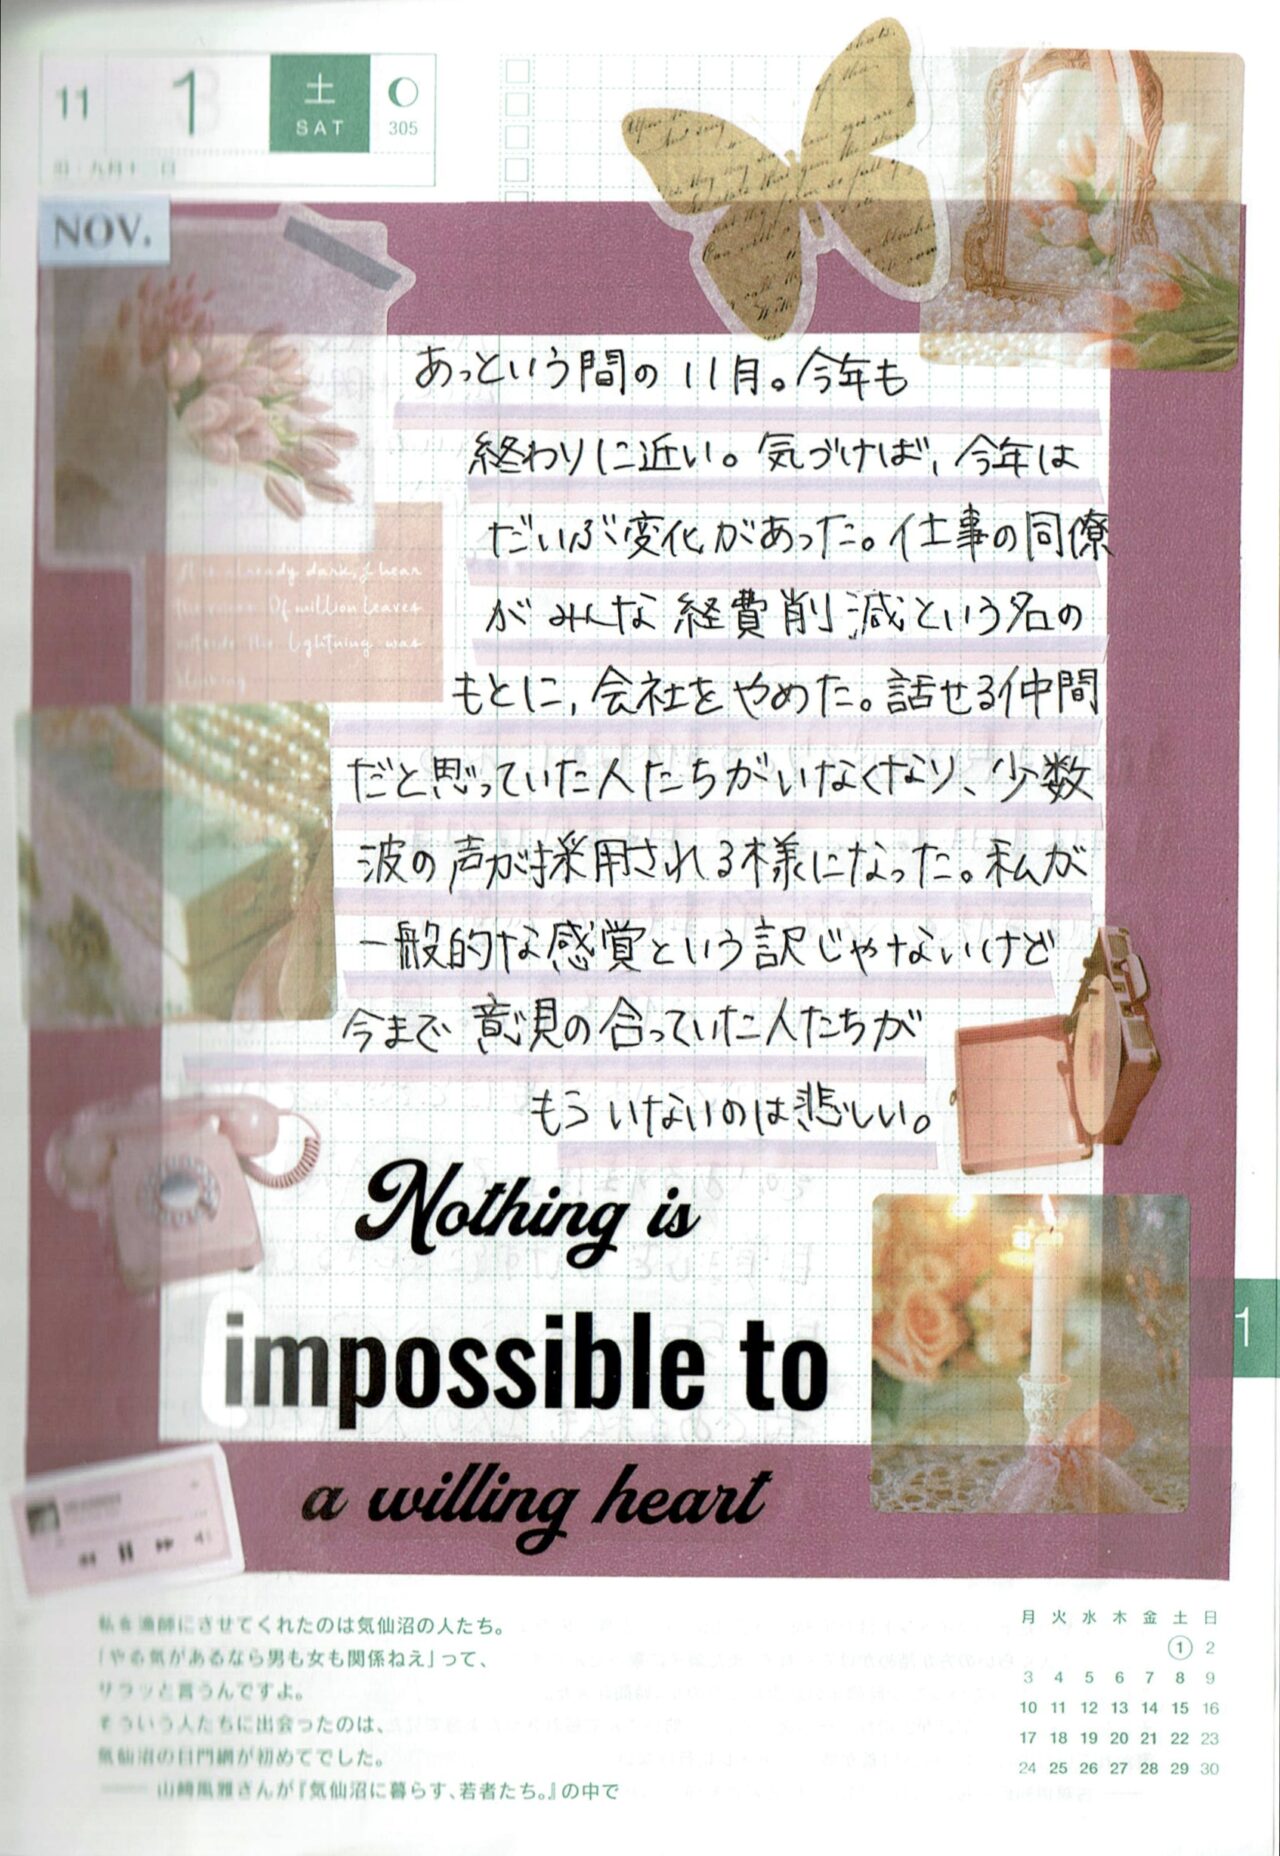 11
1
土
SAT
305
NOV.
あっという間の11月。今年も
終わりに近い。気づけば、今年は
だいぶ変化があった。仕事の同僚
がみんな経費削減という名の
もとに、会社をやめた。話せる仲間
だと思っていた人たちがいなくなり、少数
波の声が採用される様になった。私が
一般的な感覚という訳じゃないけど
今まで意見の合っていた人たちが
もういないのは悲しい。
already dark, I hear
Of million leaves
outside the lightning was
Nothing is
impossible to
a willing heart
1
私を漁師にさせてくれたのは気仙沼の人たち。
「やる気があるなら男も女も関係ねえ」って、
サラッと言うんですよ。
そういう人たちに出会ったのは、
気仙沼の日門網が初めてでした。
—— 山﨑風雅さんが『気仙沼に暮らす、若者たち。』の中で
月 火 水 木 金 土 日
1 2
3 4 5 6 7 8 9
10 11 12 13 14 15 16
17 18 19 20 21 22 23
24 25 26 27 28 29 30